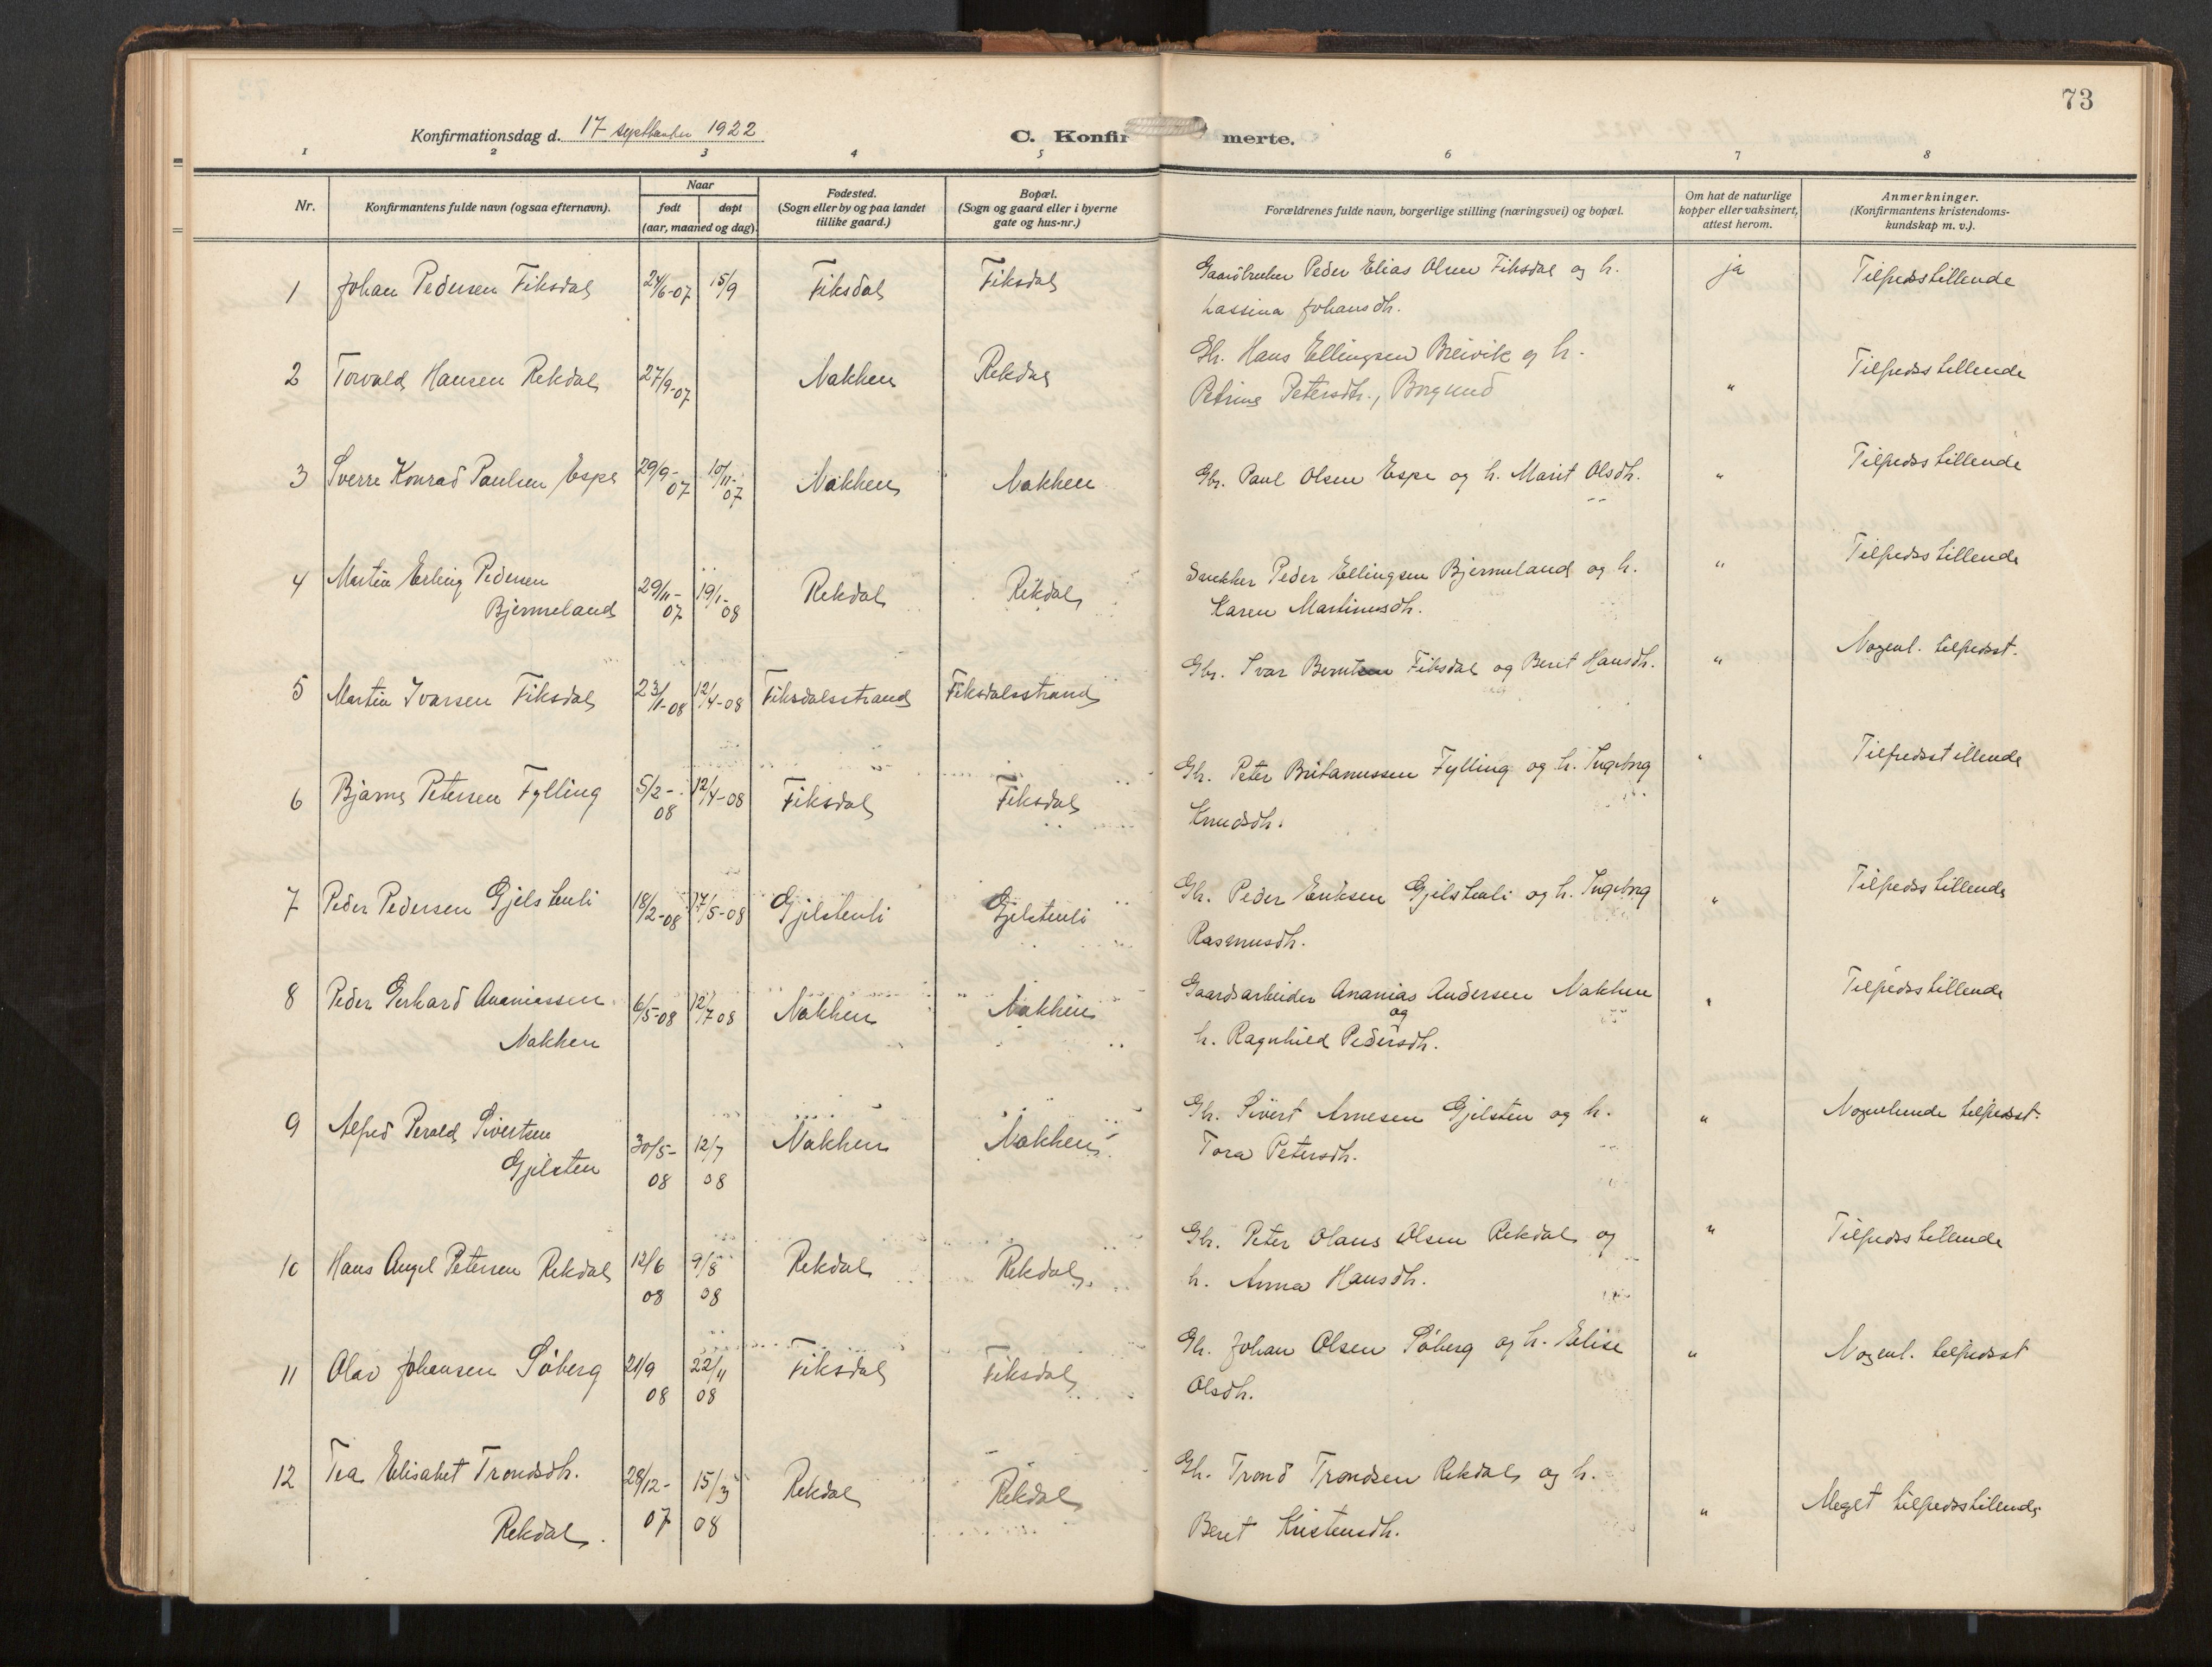 73
Konfirmationsdag d. 17 septbember 1922
C. Konfirmerte.
1 2 3 4 5 6 7 8
Nr.
Konfirmantens fulde navn (ogsaa efternavn).
Naar
født døpt
(aar, maaned og dag).
Fødested.
(Sogn eller by og paa landet
tillike gaard.)
Bopæl.
(Sogn og gaard eller i byerne
gate og hus-nr.)
Forældrenes fulde navn, borgerlige stilling (næringsvei) og bopæl.
Om hat de naturlige
kopper eller vaksinert,
attest herom.
Anmerkninger.
(Konfirmantens kristendoms-
kundskap m. v.).
1 Johan Pedersen Fiksdal 24/6-07 15/9 Fiksdal Fiksdal Gaardbruker Peder Elias Olsen Fiksdal og h. ja Tilfredsstillende
Lassina Johansdh.
2 Torvald Hansen Rekdal 27/9-07 Nakken Rekdal Gbr. Hans Ellingsen Breivik og h. " Tilfredsstillende
Petrine Petersdtr., Borgund
3 Sverre Konrad Paulsen Espe 29/9-07 10/11-07 Nakken Nakken Gbr. Paul Olsen Espe og h. Marit Olsdh. " Tilfredsstillende
4 Martin Erling Pedersen
Bjermeland 29/11-07 19/1-08 Rekdal Rekdal Snekker Peder Ellingsen Bjermeland og h. " Tilfredsstillende
Karen Martinusdh.
5 Martin Ivarsen Fiksdal 23/1-08 12/4-08 Fiksdalsstrand Fiksdalsstrand Gbr. Ivar Berntsen Fiksdal og Berit Hansdh. " Nogenl. tilfredsst.
6 Bjarne Petersen Fylling 5/2-08 12/4-08 Fiksdal Fiksdal Gbr. Peter Britanussen Fylling og h. Ingeborg " Tilfredsstillende
Knudsdh.
7 Peder Pedersen Gjelstenli 18/2-08 17/5-08 Gjelstenli Gjelstenli Gbr. Peder Eriksen Gjelstenli og h. Ingeborg " Tilfredsstillende
Rasmusdh.
8 Peder Gerhard Ananiassen
Nakken 6/5-08 12/7 08 Nakken Nakken Gaardsarbeider Ananias Andersen Nakken " Tilfredsstillende
og
h. Ragnhild Pedersdh.
9 Alfred Perald Sivertsen
Gjelsten 30/5-08 12/7 08 Nakken Nakken Gbr. Sivert Arnesen Gjelsten og h. " Nogenlunde tilfredsst.
Tora Petersdh.
10 Hans Angel Petersen Rekdal 12/6 08 9/8 08 Rekdal Rekdal Gbr. Peter Olaus Olsen Rekdal og " Tilfredsstillende
h. Anna Hansdh.
11 Olav Johansen Søberg 21/9 08 22/11 08 Fiksdal Fiksdal Gbr. Johan Olsen Søberg og h. Elise " Nogenl. tilfredsst
Olsdh.
12 Tea Elisabet Trondsdh.
Rekdal. 28/12-07 15/3 08 Rekdal Rekdal Gbr. Trond Trondsen Rekdal og h. " Meget tilfredsstillende
Beret Kristensdh.